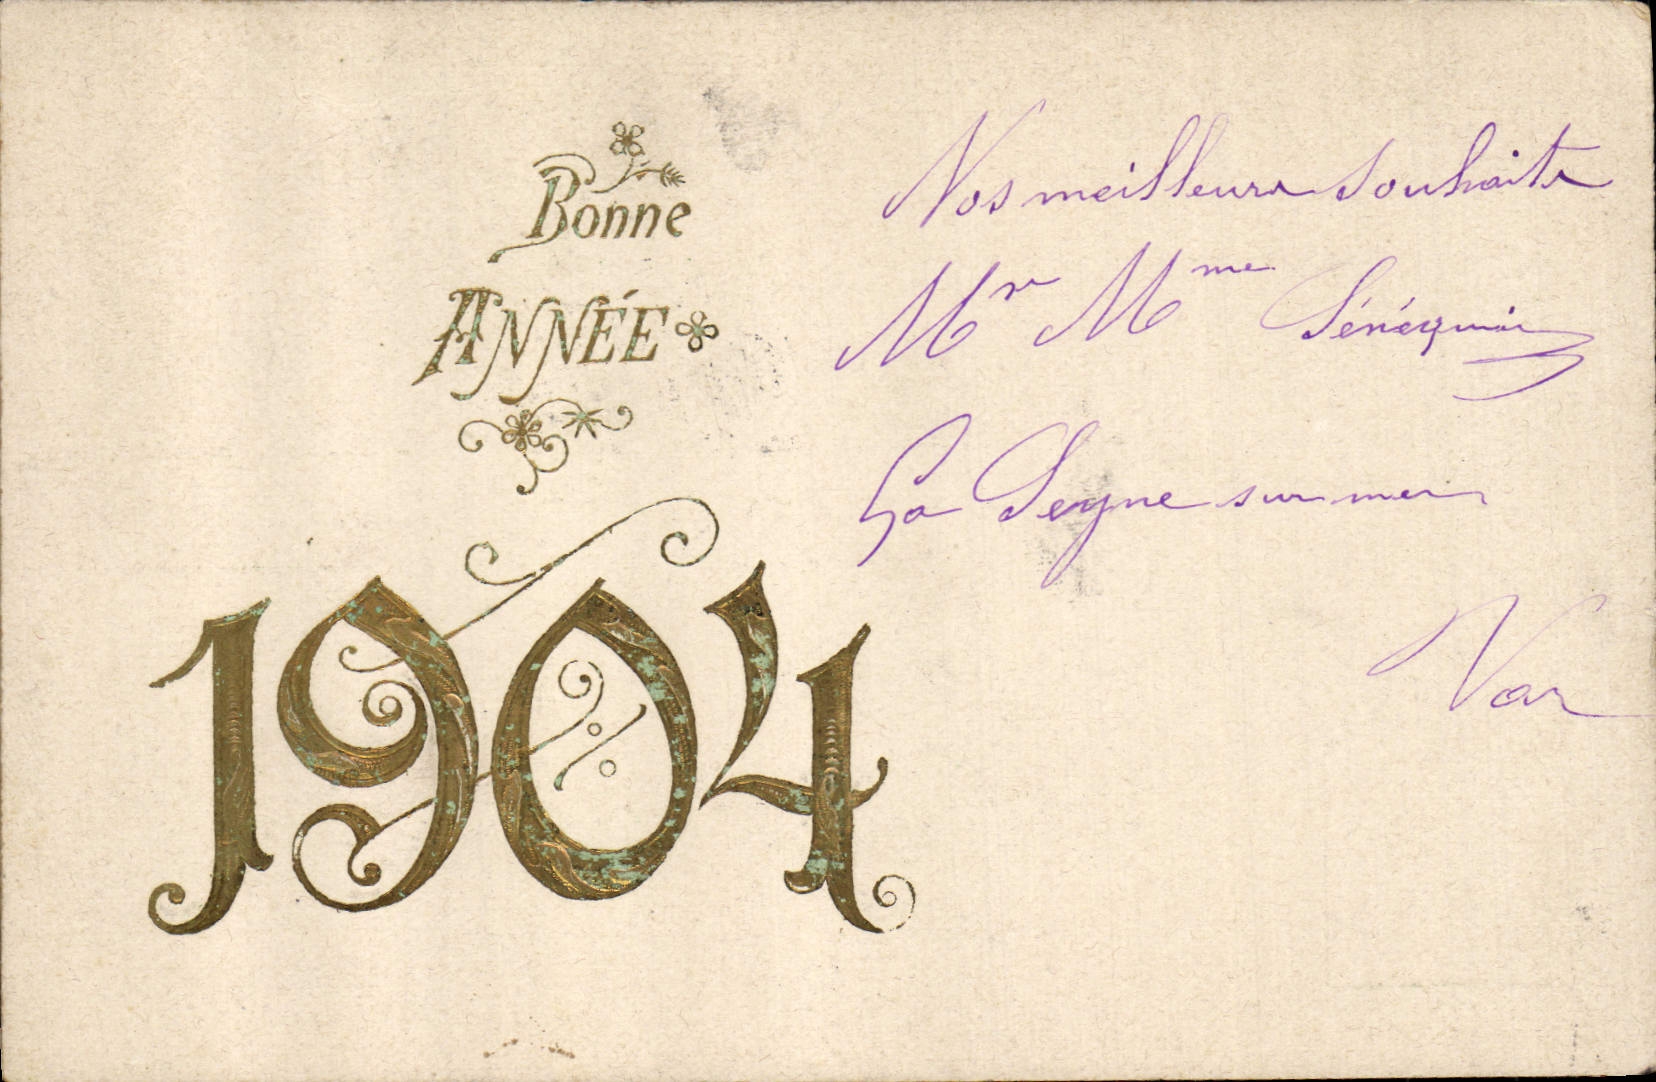 Bonne
ANNÉE
1904
Nos meilleurs souhaits
Mr Mme Sénéquier
La Seyne sur mer
Var